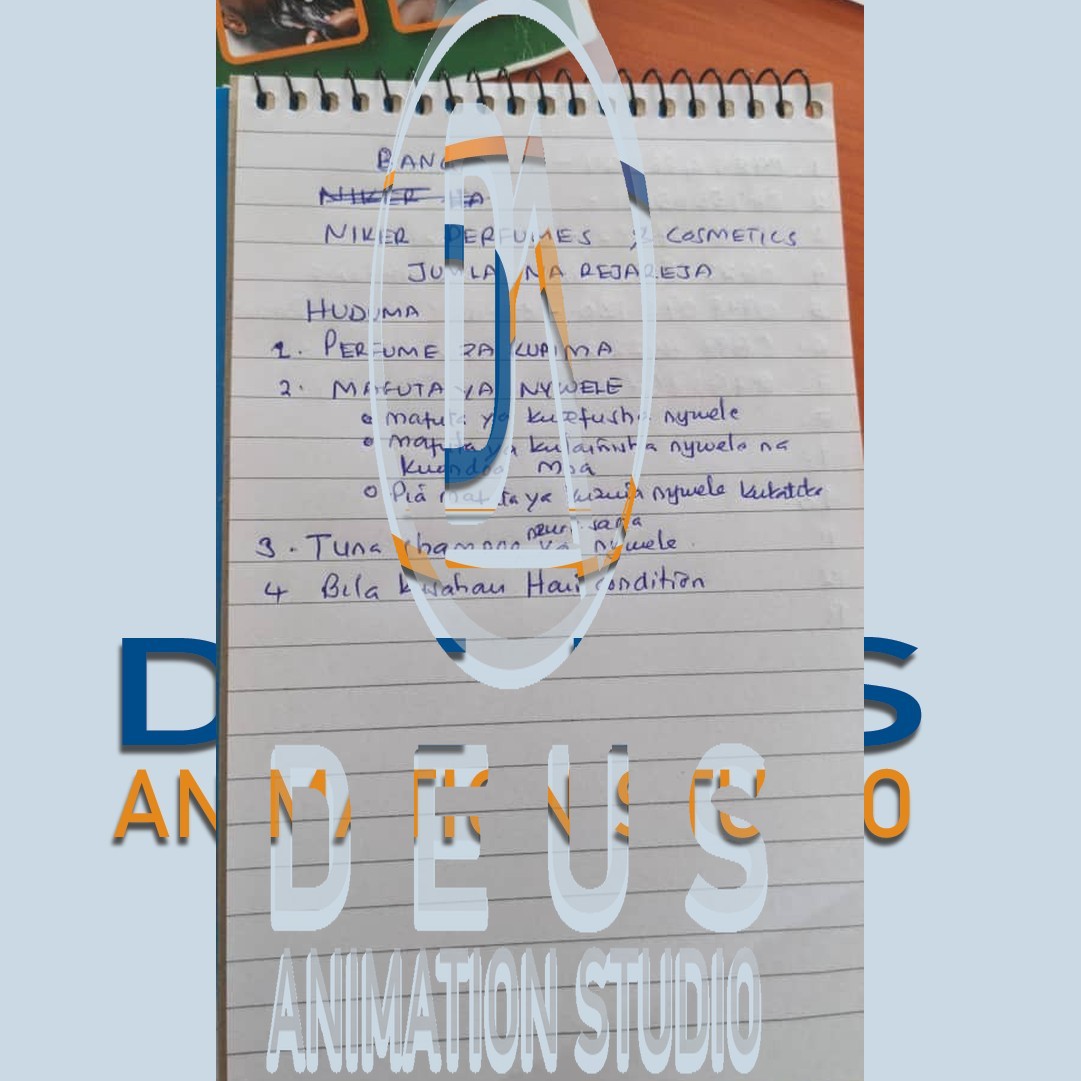 NIKER PERFUMES & COSMETICS
JUMLA NA REJAREJA
HUDUMA
1. PERFUME ZA KUPIMA
2. MAFUTA YA NYWELE
mafuta ya kurefusha nywele
mafuta ya kulainisha nywele na
kuondoa mba
Pia mafuta ya kuzuia nywele kukatika
nzuri sana
3. Tuna shampoo ya nywele.
4 Bila kusahau Hair condition
DEUS
ANIMATION STUDIO